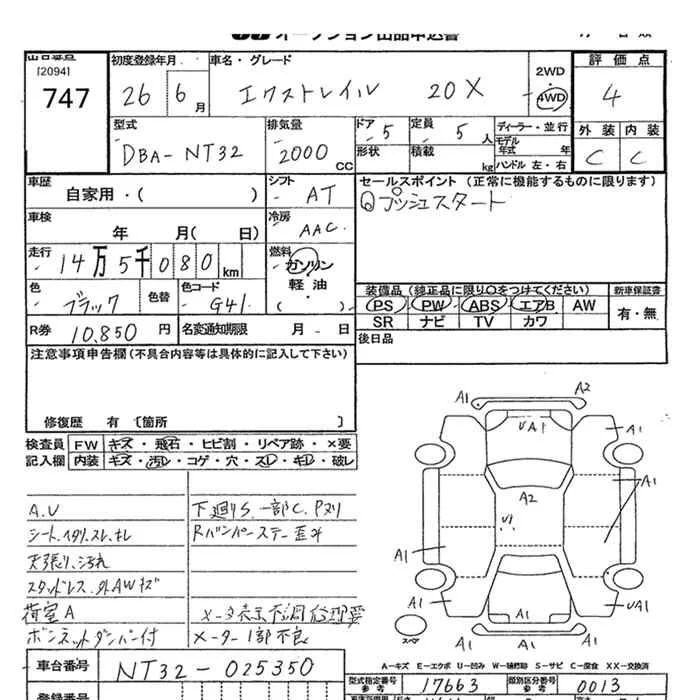 オークション出品申込書
[2094]
747
初度登録年月
26 6月
車名・グレード
エクストレイル 20X
2WD
4WD
評価点
4
外装 内装
C C
型式
DBA-NT32
排気量
2000 CC
ドア 5
形状
定員 5人
積載 kg
ディーラー・並行
モデル年式 年
ハンドル 左・右
車歴
自家用・( )
シフト
AT
セールスポイント (正常に機能するものに限ります)
プッシュスタート
車検
年 月( 日)
冷房
AAC
走行
14万5千080km
燃料
ガソリン
軽油
( )
色
ブラック
色替
色コード
G41
装備品 (純正品に限り〇をつけてください)
PS PW ABS エアB AW
SR ナビ TV カワ
新車保証書
有・無
R券
10,850 円
名変通知期限 月 日
後日品
注意事項申告欄(不具合内容等は具体的に記入して下さい)
修復歴 有 〔箇所 〕
検査員
記入欄
FW キズ・飛石・ヒビ割・リペア跡・×要
内装 キズ・汚レ・コゲ・穴・スレ・キレ・破レ
A.V
シートヘタリ.スレ.
天張り.汚れ
スタッドレス.外AWキズ
荷室A
ボンネットダンパー付
下廻りS.一部C.Pヌリ
Rバンパーステー歪み
メータ表示不調修理要
メーター1部不良
A1 A2
A1 UA1 A1
A2 A1
U1
A1 A1
A1 UA1
スペア
A1 A1 A1
A-キズ E-エクボ U-凹み W-補修跡 S-サビ C-腐食 XX-交換済
車台番号
NT32-025350
型式指定番号
参考
17663
類別区分番号
参考
0013
登録番号